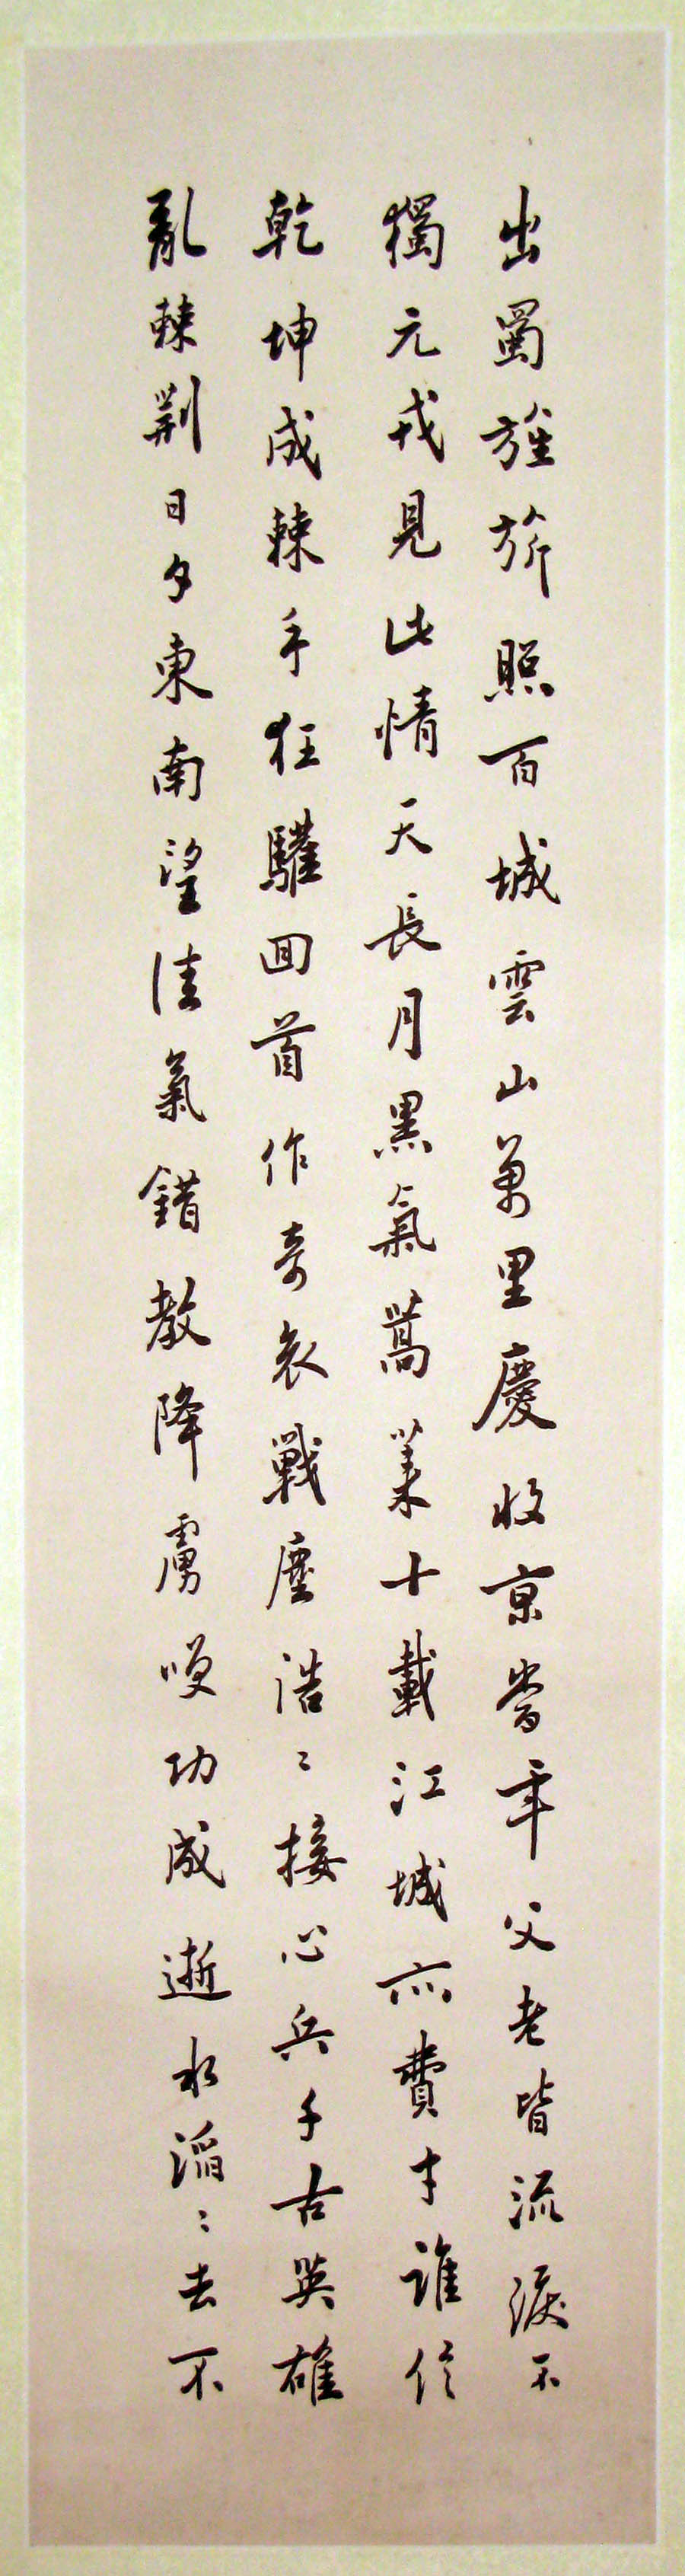 出蜀旌旂照百城雲山萬里慶收京當年父老皆流淚不
獨元戎見此情天長月黑氣蒿萊十載江城亦費才誰信
乾坤成棘手狂驩回首作奇哀戰塵浩〻接心兵千古英雄
亂棘荆日夕東南望佳氣錯教降虜哭功成逝水滔〻去不